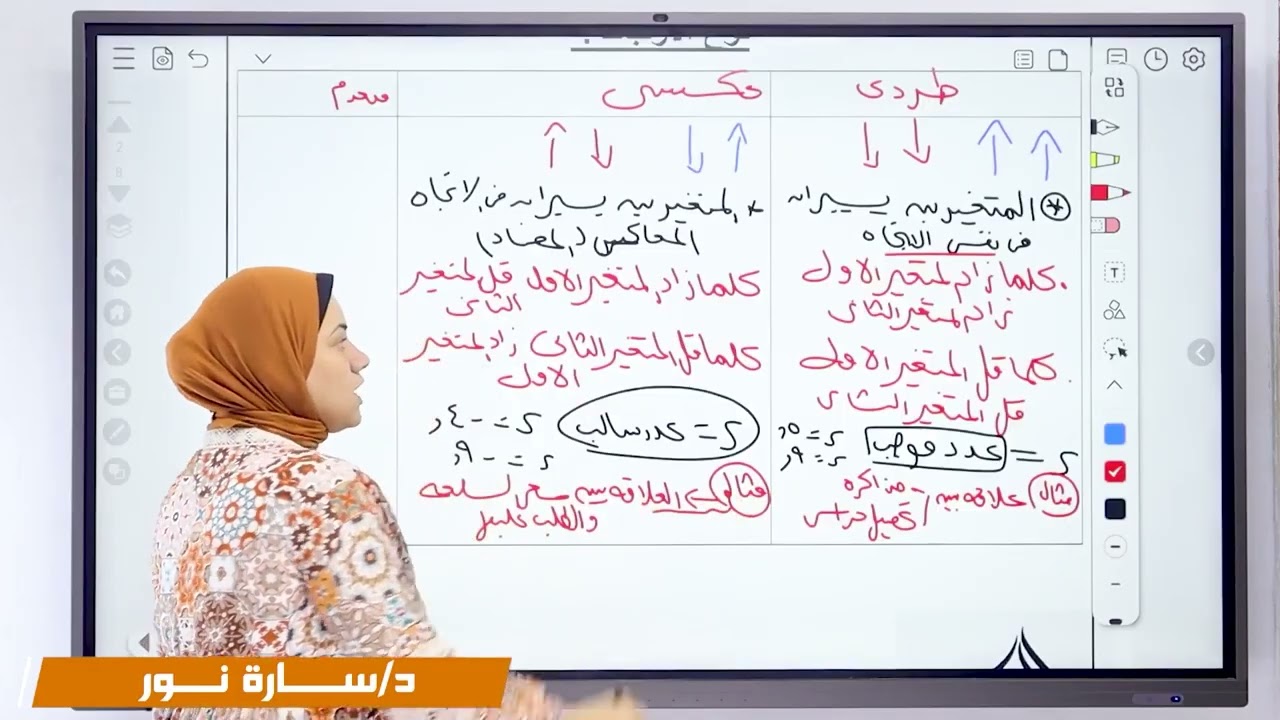 نوع الارتباط :
طردى
عكسى
منعدم
* المتغيرين يسيران
فى نفس الاتجاه
. كلما زاد المتغير الاول
زاد المتغير الثانى
. كلما قل المتغير الاول
قل المتغير الثانى
ر = عدد موجب
ر = ٥,
ر = ٩,
مثال علاقه بين مذاكره
تحصيل دراسى
* المتغيرين يسيران فى الاتجاه
المعاكس (المضاد)
كلما زاد المتغير الاول قل المتغير
الثانى
كلما قل المتغير الثانى زاد المتغير
الاول
ر = عدد سالب
ر = - ٤,
ر = - ٩,
مثال العلاقه بين سعر السلعه
والطلب عليها
د/ســارة نــور
2
8
T